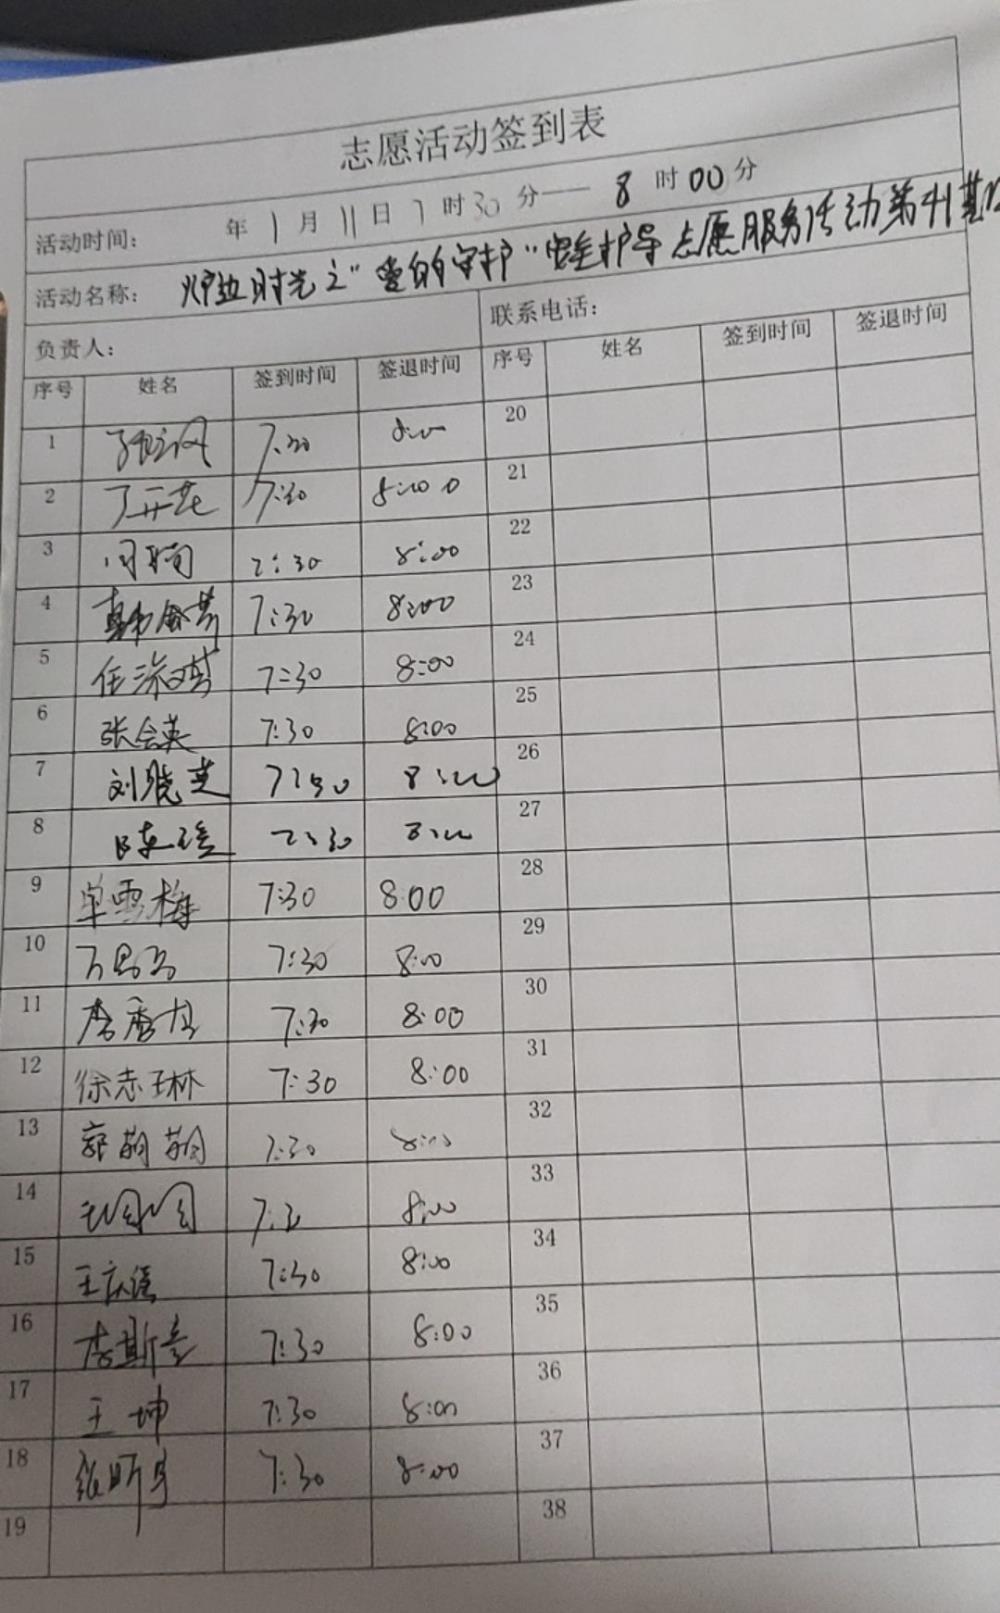 志愿活动签到表
活动时间: 年 1 月 11 日 7 时 30 分 — 8 时 00 分
活动名称: 炉边时光之"爱的守护"安全护导志愿服务活动第41期
负责人: 联系电话:
序号 姓名 签到时间 签退时间 序号 姓名 签到时间 签退时间
1 7:30 8:00 20
2 丁开花 7:30 8:00 21
3 7:30 8:00 22
4 7:30 8:00 23
5 任 7:30 8:00 24
6 张会英 7:30 8:00 25
7 刘晓芝 7:30 8:00 26
8 陈瑶 7:30 8:00 27
9 单雪梅 7:30 8:00 28
10 7:30 8:00 29
11 7:30 8:00 30
12 徐志琳 7:30 8:00 31
13 郭萌萌 7:30 8:00 32
14 8:00 33
15 王庆 7:30 8:00 34
16 李斯 7:30 8:00 35
17 王坤 7:30 8:00 36
18 张昕宇 7:30 8:00 37
19 38